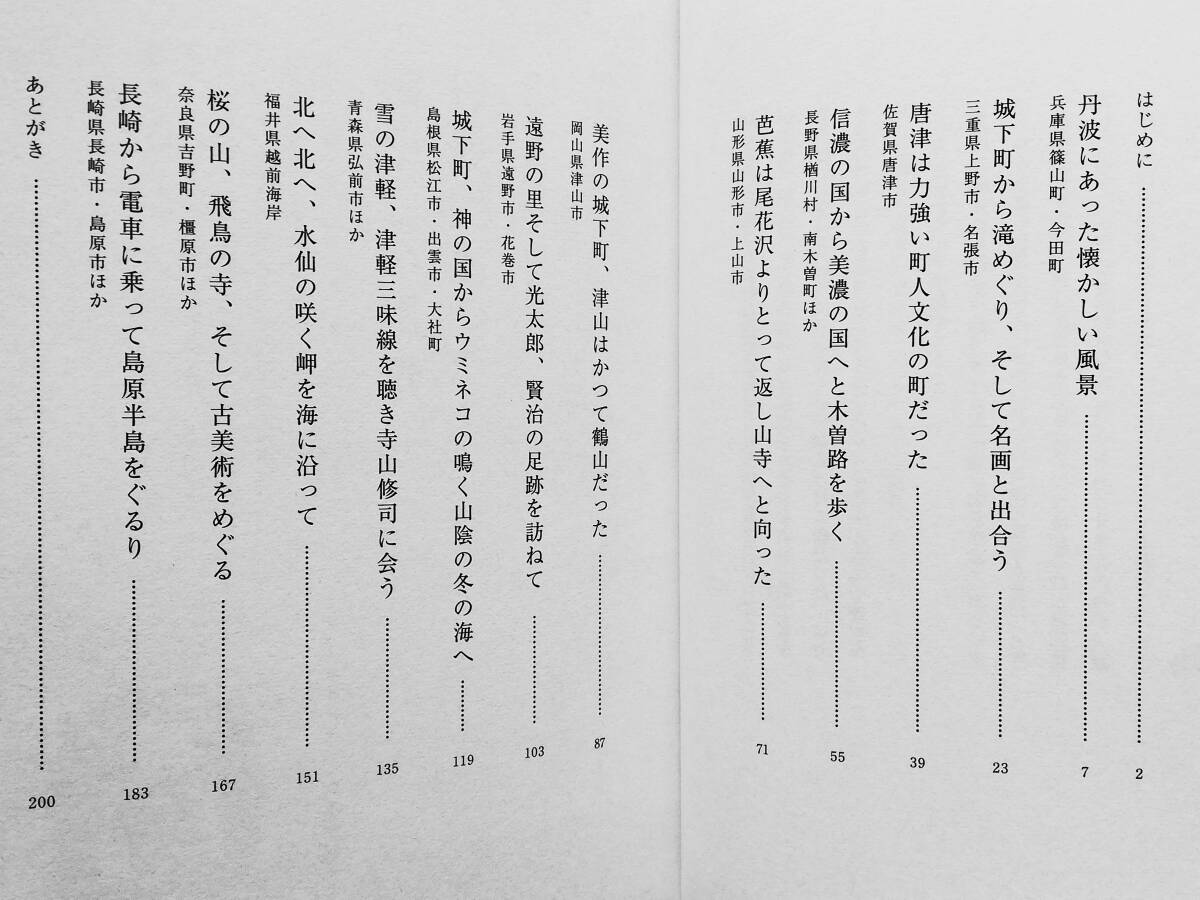 はじめに……………………………… 2
丹波にあった懐かしい風景……………………………… 7
兵庫県篠山町・今田町
城下町から滝めぐり、そして名画と出合う……………… 23
三重県上野市・名張市
唐津は力強い町人文化の町だった……………………… 39
佐賀県唐津市
信濃の国から美濃の国へと木曽路を歩く……………… 55
長野県楢川村・南木曽町ほか
芭蕉は尾花沢よりとって返し山寺へと向った…………… 71
山形県山形市・上山市
美作の城下町、津山はかつて鶴山だった……………… 87
岡山県津山市
遠野の里そして光太郎、賢治の足跡を訪ねて………… 103
岩手県遠野市・花巻市
城下町、神の国からウミネコの鳴く山陰の冬の海へ…… 119
島根県松江市・出雲市・大社町
雪の津軽、津軽三味線を聴き寺山修司に会う………… 135
青森県弘前市ほか
北へ北へ、水仙の咲く岬を海に沿って………………… 151
福井県越前海岸
桜の山、飛鳥の寺、そして古美術をめぐる……………… 167
奈良県吉野町・橿原市ほか
長崎から電車に乗って島原半島をぐるり……………… 183
長崎県長崎市・島原市ほか
あとがき……………………………… 200